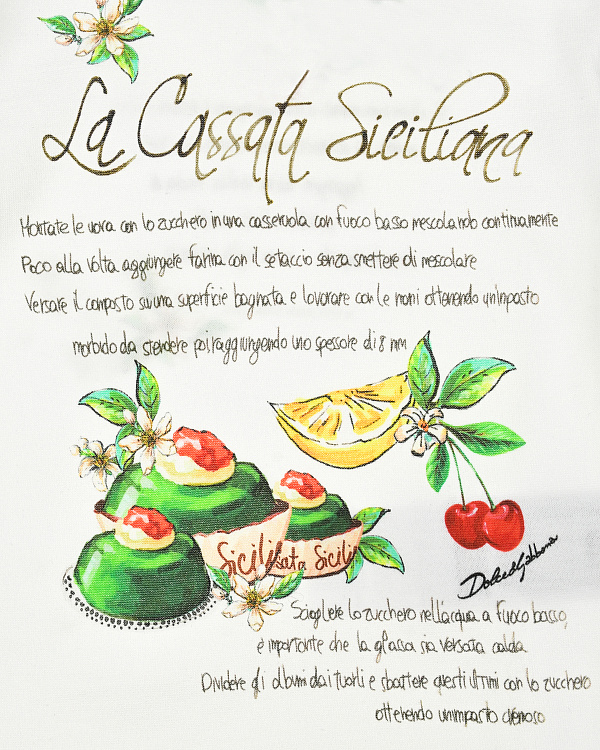 La Cassata Siciliana
Montate le uova con lo zucchero in una casseruola con fuoco basso mescolando continuamente
Poco alla volta aggiungere farina con il setaccio senza smettere di mescolare
Versare il composto su una superficie bagnata e lavorare con le mani ottenendo un'impasto
morbido da stendere poi raggiungendo uno spessore di 8 mm
Sicili sata Sicili
Dolce&Gabbana
Sciogliere lo zucchero nell'acqua a fuoco basso,
è importante che la glassa sia versata calda
Dividere gli albumi dai tuorli e sbattere questi ultimi con lo zucchero
ottenendo un impasto cremoso